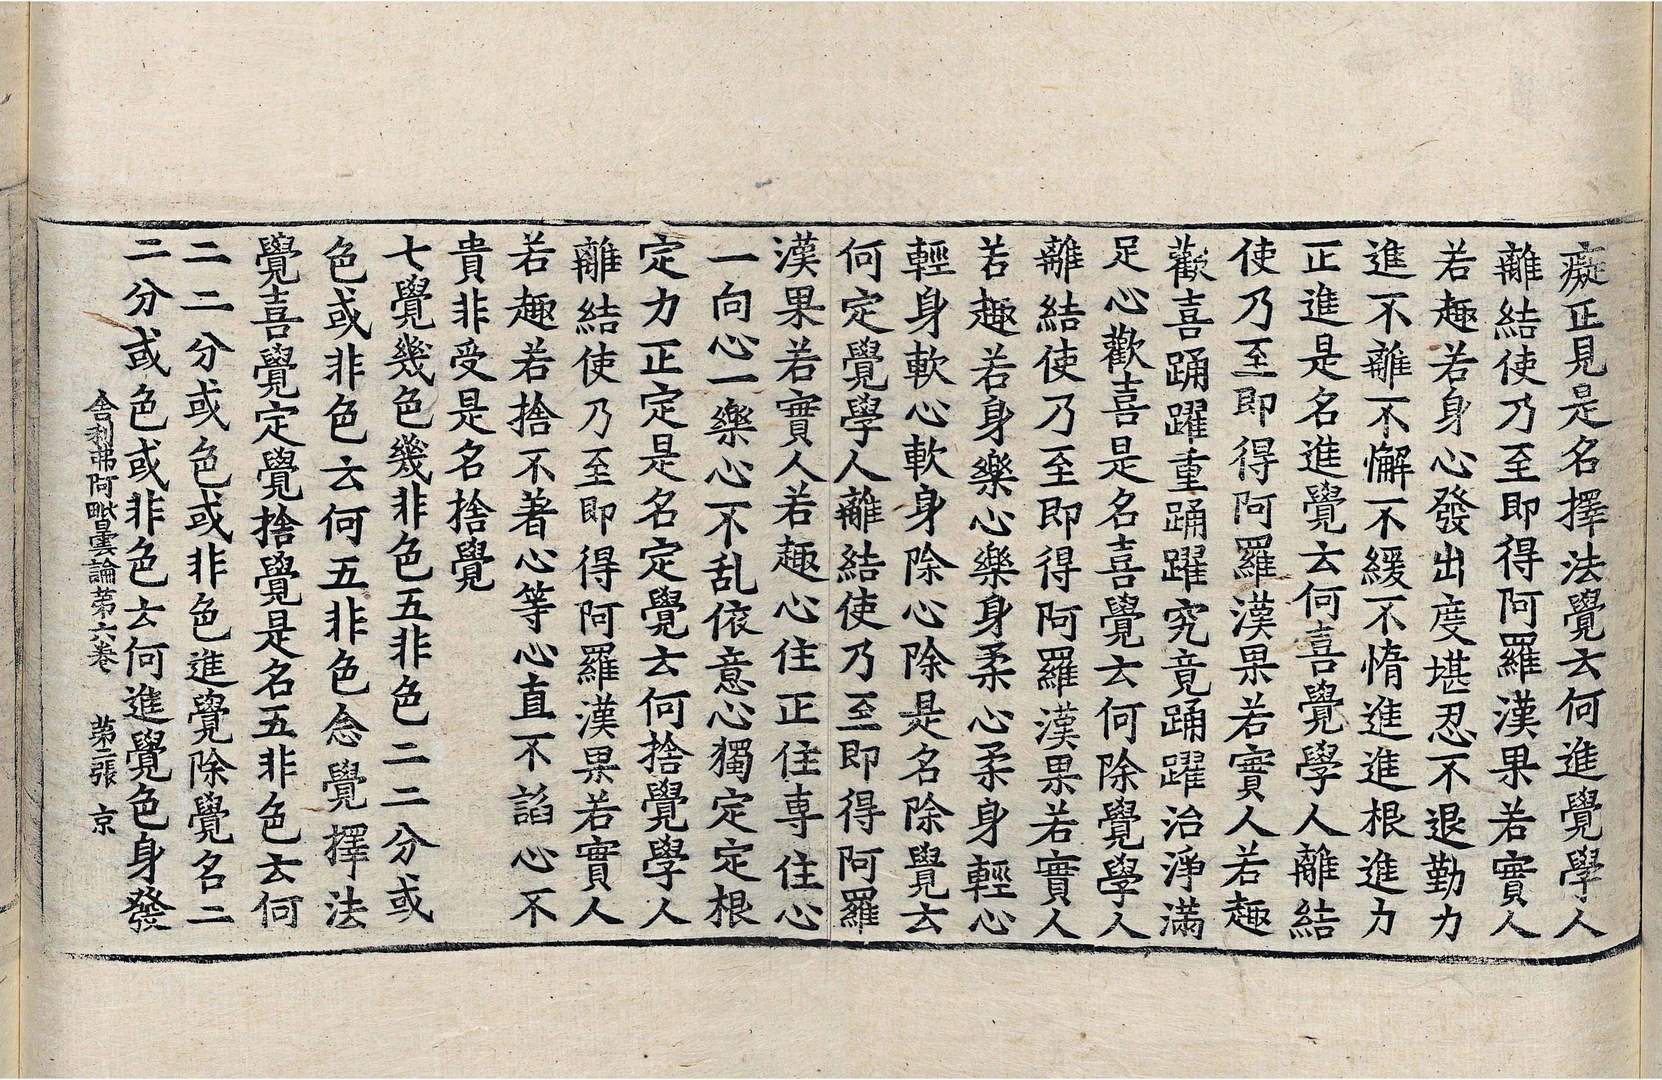 癡正見是名擇法覺云何進覺學人
離結使乃至即得阿羅漢果若實人
若趣若身心發出度堪忍不退勤力
進不離不懈不緩不惰進進根進力
正進是名進覺云何喜覺學人離結
使乃至即得阿羅漢果若實人若趣
歡喜踊躍重踊躍究竟踊躍治淨滿
足心歡喜是名喜覺云何除覺學人
離結使乃至即得阿羅漢果若實人
若趣若身樂心樂身柔心柔身輕心
輕身軟心軟身除心除是名除覺云
何定覺學人離結使乃至即得阿羅
漢果若實人若趣心住正住専住心
一向心一樂心不乱依意心獨定定根
定力正定是名定覺云何捨覺學人
離結使乃至即得阿羅漢果若實人
若趣若捨不著心等心直不諂心不
貴非受是名捨覺
七覺幾色幾非色五非色二二分或
色或非色云何五非色念覺擇法
覺喜覺定覺捨覺是名五非色云何
二二分或色或非色進覺除覺名二
二分或色或非色云何進覺色身發
舍利弗阿毗曇論第六卷 第二張 京